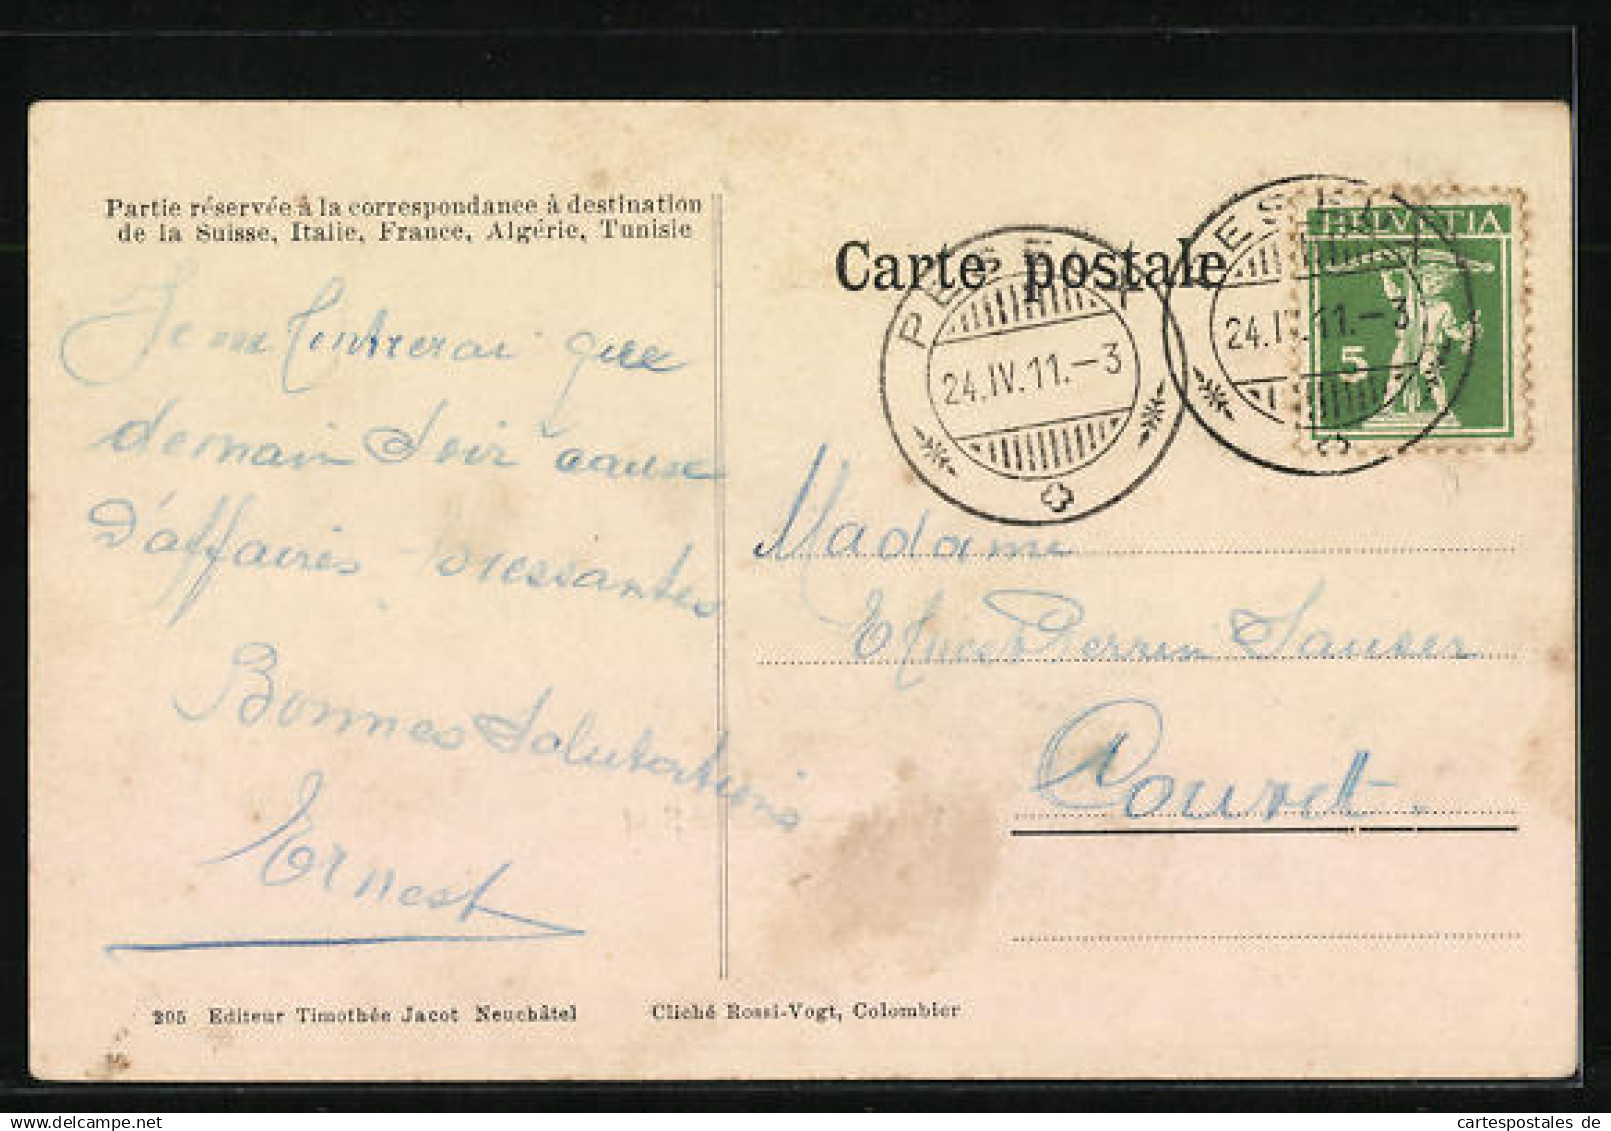 Partie réservée à la correspondance à destination
de la Suisse, Italie, France, Algérie, Tunisie
Carte postale
PESEUX
24.IV.11.–3
PESEUX
24.IV.11.–3
HELVETIA
5
Je ne rentrerai que
demain soir à cause
d'affaires pressantes
Bonnes Salutations
Ernest
Madame
Perrin Sauser
Couvet.
205 Editeur Timothée Jacot Neuchâtel
Cliché Rossi-Vogt, Colombier
delcampe.net
cartespostales de